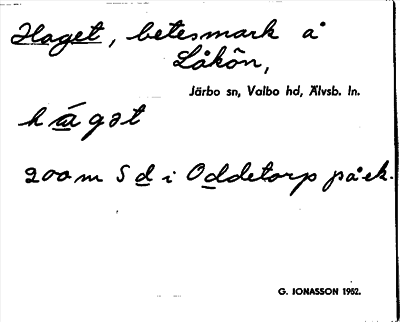 Haget, betesmark å
Låkôn,
Järbo sn, Valbo hd, Älvsb. ln.
hágət
200m S d i Oddetorp på ek.
G. JONASSON 1952.